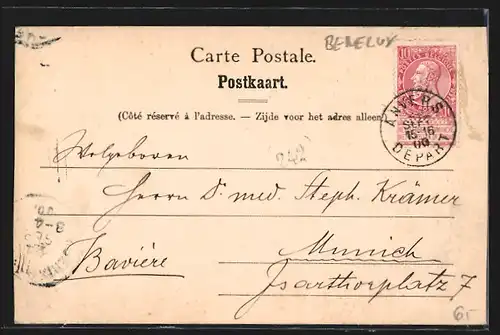 BENELUX
Carte Postale.
Postkaart.
(Côté réservé à l'adresse. — Zijde voor het adres alleen
10
ANVERS
15-16
00
DEPART
Wolgeboren
Herrn Dr. med. Steph. Krämer
Munich
Bavière
Isarthorplatz 7